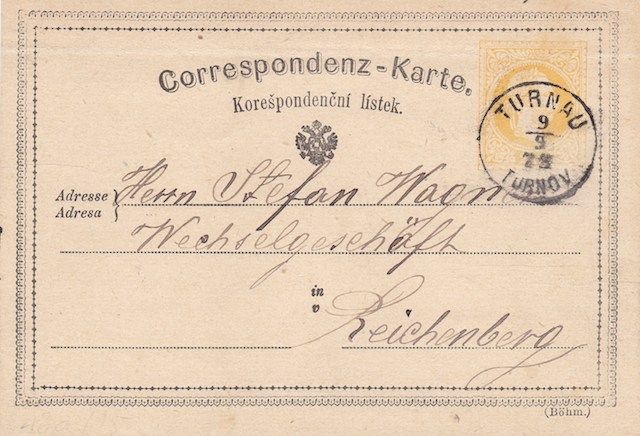 Correspondenz-Karte.
Korešpondenční lístek.
TURNAU
9
TURNOV
Adresse
Adresa
Herrn Stefan Wagner
Wechselgeschäft
in
v
Reichenberg
(Böhm.)